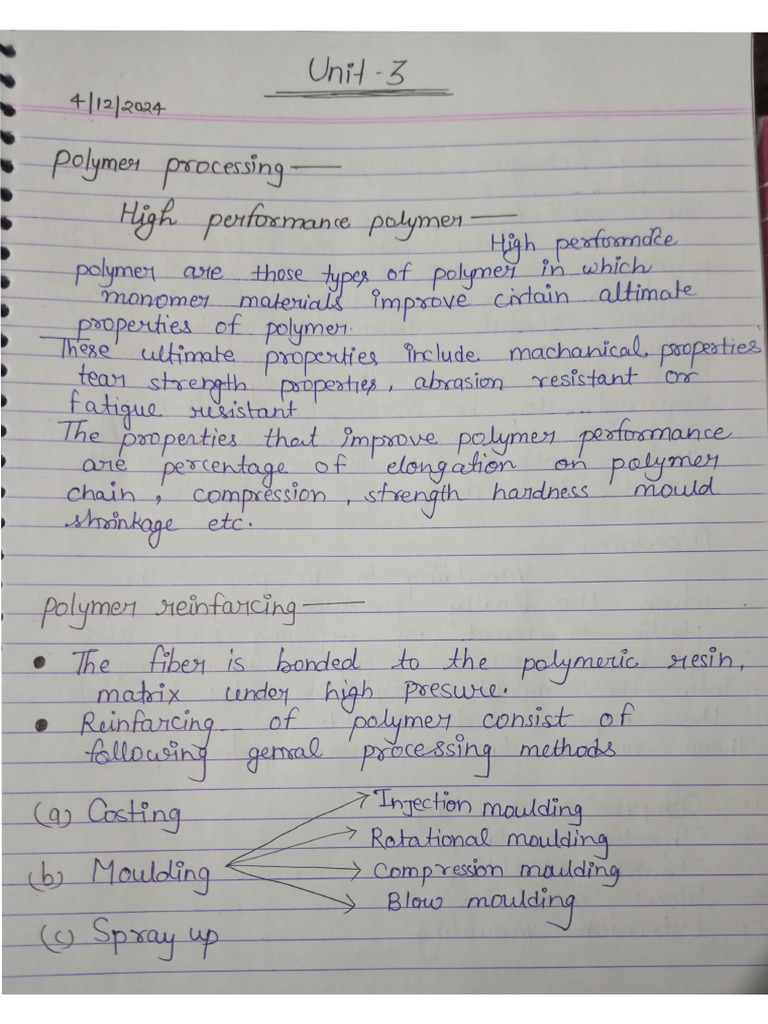 Unit-3
4/12/2024
Polymer processing —
High performance polymer —
High performace
polymer are those types of polymer in which
monomer materials improve cirtain altimate
properties of polymer.
These ultimate properties include machanical properties
tear strength properties, abrasion resistant or
fatigue resistant
The properties that improve polymer performance
are percentage of elongation on polymer
chain, compression, strength hardness mould
shrinkage etc.
polymer reinfarcing —
• The fiber is bonded to the polymeric resin,
matrix under high presure.
• Reinfarcing of polymer consist of
following genral processing methods
(a) Costing
Injection moulding
Rotational moulding
(b) Moulding
Compression moulding
Blow moulding
(c) Spray up